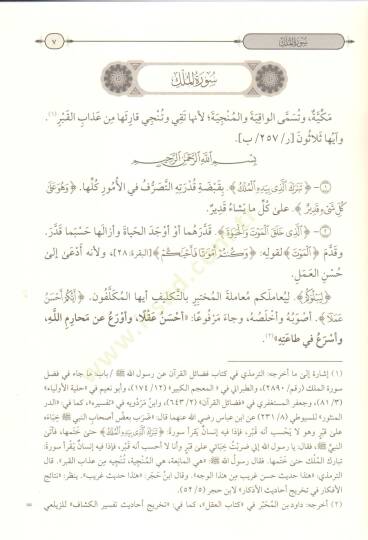 سورة الملك
٧
سُورَةُ المُلْكِ
مَكِّيَّةٌ، وتُسَمَّى الواقِيَةَ والمُنْجِيَةَ؛ لأنها تَقِي وتُنْجِي قارِئَها مِن عَذابِ القَبْرِ(١).
وآيُها ثَلاثُونَ [ر/ ٢٥٧/ ب].
بِسْمِ اللَّهِ الرَّحْمَنِ الرَّحِيمِ
(١)- ﴿تَبَٰرَكَ ٱلَّذِى بِيَدِهِ ٱلْمُلْكُ﴾. بِقَبضَةِ قُدْرَتِهِ التَّصَرُّفُ في الأُمُورِ كُلِّها. ﴿وَهُوَ عَلَىٰ
كُلِّ شَىْءٍ قَدِيرٌ﴾. على كُلِّ ما يَشاءُ قَدِيرٌ.
(٢)- ﴿ٱلَّذِى خَلَقَ ٱلْمَوْتَ وَٱلْحَيَوٰةَ﴾. قَدَّرَهُما أو أوْجَدَ الحَياةَ وأزالَها حَسْبَما قَدَّرَ.
وقَدَّمَ ﴿ٱلْمَوْتَ﴾ لقولِه: ﴿وَكُنتُمْ أَمْوَٰتًا فَأَحْيَٰكُمْ﴾ [البقرة: ٢٨]، ولأنه أَدْعَىٰ إلىٰ
حُسْنِ العَمَلِ.
﴿لِيَبْلُوَكُمْ﴾ لِيُعامِلَكم مُعامَلةَ المُخْتَبِرِ بالتَّكلِيفِ أيها المُكَلَّفُون. ﴿أَيُّكُمْ أَحْسَنُ
عَمَلًا﴾. أصْوَبُهُ وأخْلَصُهُ، وجاءَ مَرفُوعًا: «أحْسَنُ عَقْلًا، وأوْرَعُ عن مَحارِمِ اللَّهِ،
وأسْرَعُ في طاعَتِهِ»(٢).
(١) إشارة إلى ما أخرجه: الترمذي في كتاب فضائل القرآن عن رسول الله ﷺ / باب: ما جاء في فضل
سورة الملك (رقم/ ٢٨٩٠)، والطبراني في «المعجم الكبير» (١٢/ ١٧٤)، وأبو نعيم في «حلية الأولياء»
(٣/ ٨١)، وجعفر المستغفري في «فضائل القرآن» (٢/ ٦٤٣)، وابنُ مَرْدويه في «تفسيره»، كما في «الدر
المنثور» للسيوطي (٨/ ٢٣١) عن ابن عباس رضي الله عنهما قال: «ضَرَب بعضُ أصحابِ النبي ﷺ خِبَاءَه
على قبرٍ وهو لا يَحْسب أنه قبْر، فإذا فيه إنسانٌ يقرأ سورة: ﴿تَبَٰرَكَ ٱلَّذِى بِيَدِهِ ٱلْمُلْكُ﴾ حتى خَتمها، فأتى
النبيَّ ﷺ، فقال: يا رسول الله إني ضربْتُ خِبَائي على قبْرٍ وأنا لا أحسب أنه قبر، فإذا فيه إنسانٌ يقرأ سورة:
تبارك المُلك حتى خَتمها. فقال رسول الله ﷺ: «هي المانعة، هي المنجية، تُنْجيه مِن عذاب القبر». قال
الترمذي: «هذا حديث حسن غريب مِن هذا الوجه». وقال ابنُ حَجَر: «هذا حديث غريب». ينظر: «نتائج
الأفكار في تخريج أحاديث الأذكار» لابن حجر (٥/ ٥٢).
(٢) أخرجه: داود بن المُحَبّر في «كتاب العقل»، كما في: «تخريج أحاديث تفسير الكشاف» للزيلعي =